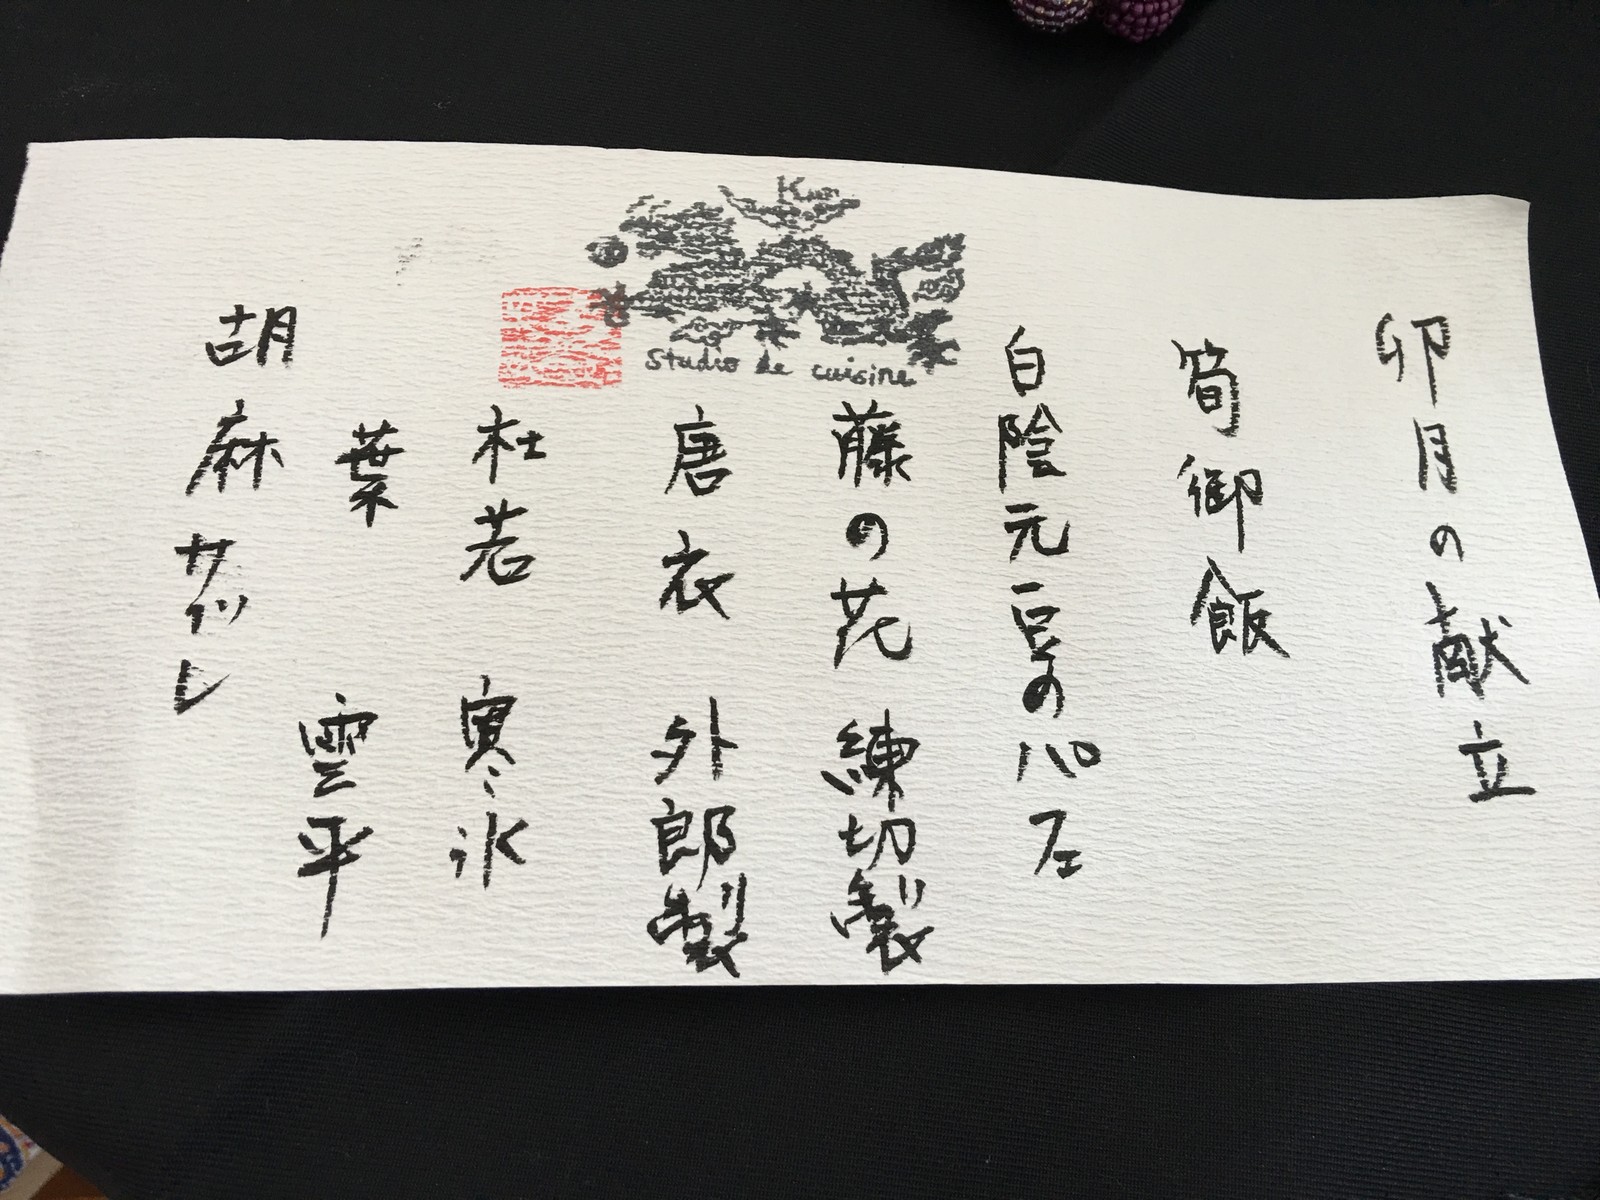 卯月の献立
筍御飯
白陰元豆のパフェ
藤の花 練切製
唐衣 外郎製
杜若 寒氷
葉 雲平
胡麻サブレ
Kun
studio de cuisine